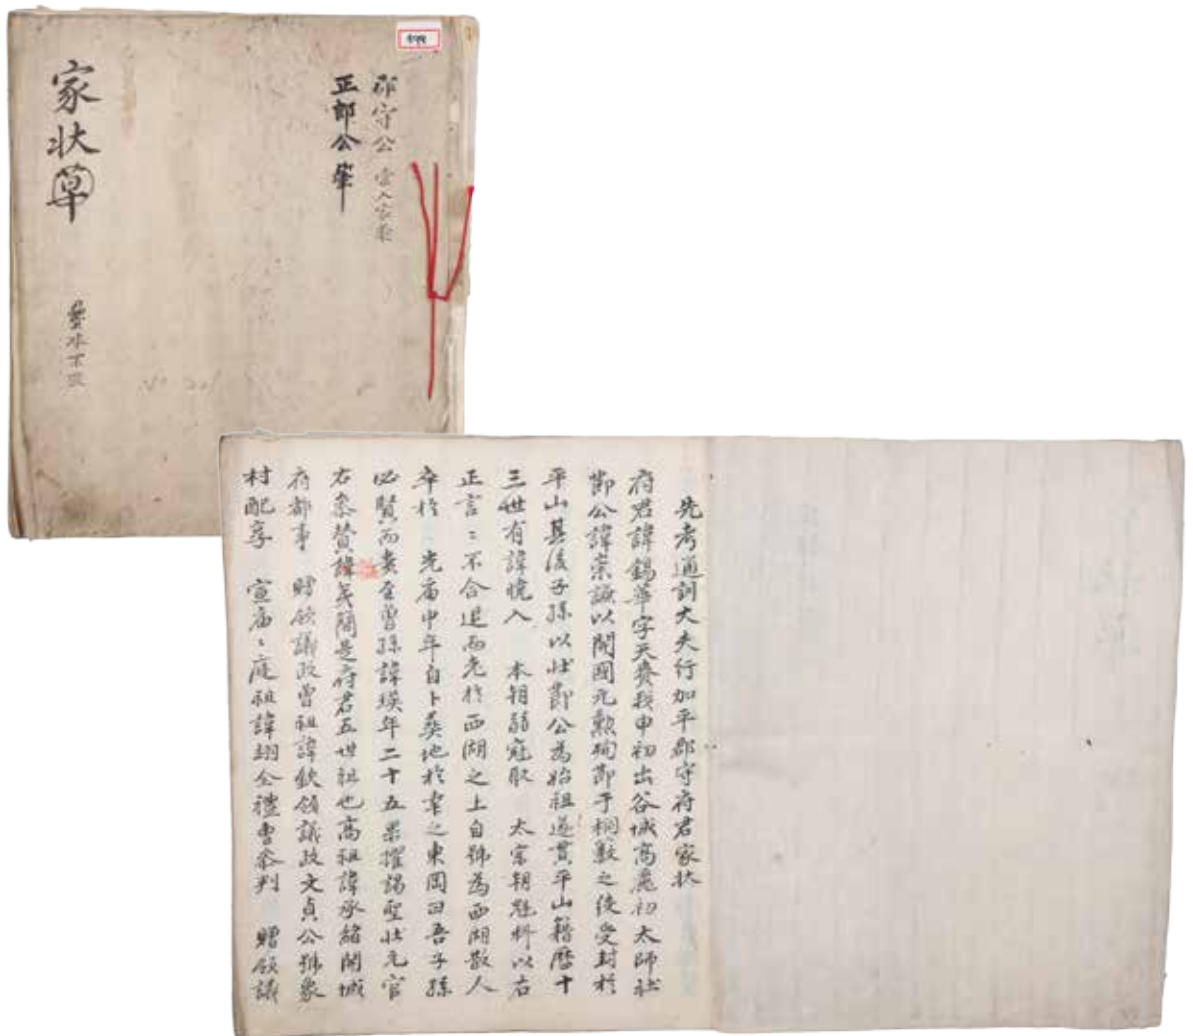 郡守公
正郎公 筆
家狀草
先考通訓大夫行加平郡守府君家狀
府君諱錫華字天賚我申初出谷城高麗初太師壯
節公諱崇謙以開國元勳殉節于桐藪之役受封於
平山其後子孫以壯節公為始祖遂貫平山籍曆十
三世有諱曉入 本朝弱冠取 太宗朝魁科以右
正言〻不合退而老於西湖之上自號為西湖散人
卒於 光廟中年自卜葬地於 之東岡曰吾子孫
必賢而貴至曾孫諱瑛年二十五果擢謁聖壯元官
右參贊諱 簡是府君五世祖也高祖諱承緖開城
府都事 贈領議政曾祖諱欽領議政文貞公號象
村配享 宣廟〻庭祖諱翊全禮曹參判 贈領議